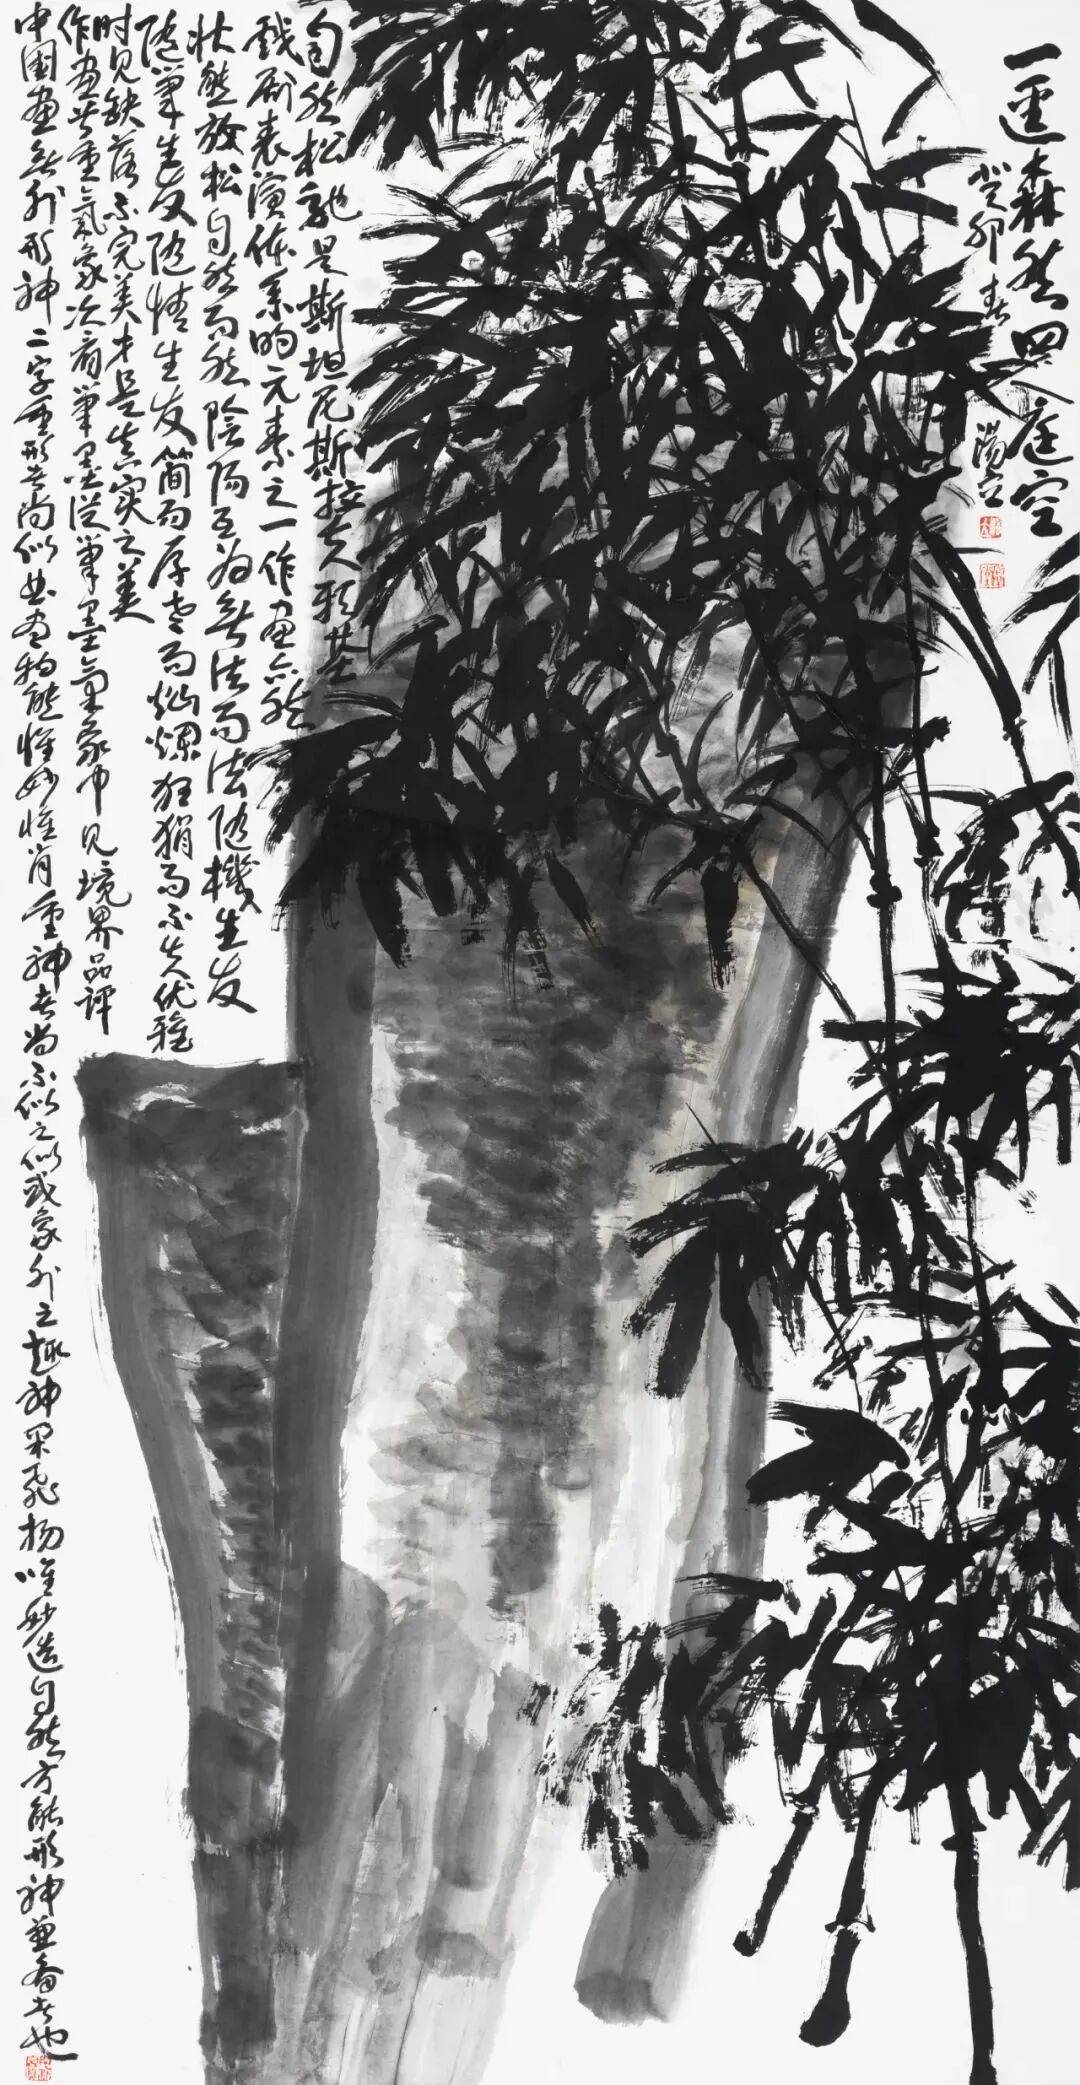 一逕森然四座空
癸卯春 汤立
自然松弛是斯坦尼斯拉夫斯基
戏剧表演体系的元素之一作画亦然
状态放松自然而然阴阳互为无法而法随機生发
随笔生发随情生发简而厚老而灿烂狂狷而不失优雅
时见缺落不完美才是真实之美
作画当重氣象次看笔墨从笔墨氣象中见境界品评
中国画无外形神二字重形者尚似曲尽物态惟妙惟肖重神者尚不似之似或象外之趣神采飞扬唯妙造自然方能形神兼备者也